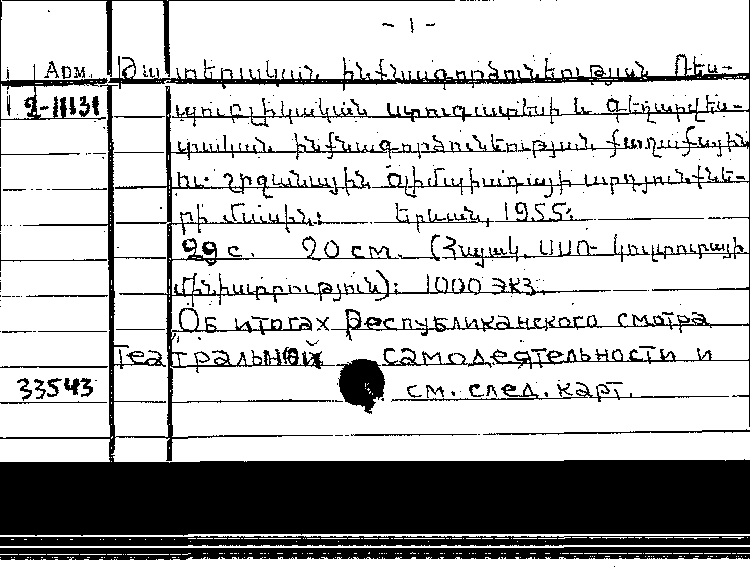 - 1 -
Арм. Թատերական ինքնագործունեության Ռես-
2-11131 պուբլիկական ստուգատեսի և գեղարվես-
տական ինքնագործունեության քաղաքային
ու շրջանային օլիմպիադայի արդյունքնե-
րի մասին: Երևան, 1955:
29 с. 20 см. (Հայակ. ՍՍՌ կուլտուրայի
մինիստրություն): 1000 экз.
Об итогах Республиканского смотра
театральной самодеятельности и
33543 см. след. карт.